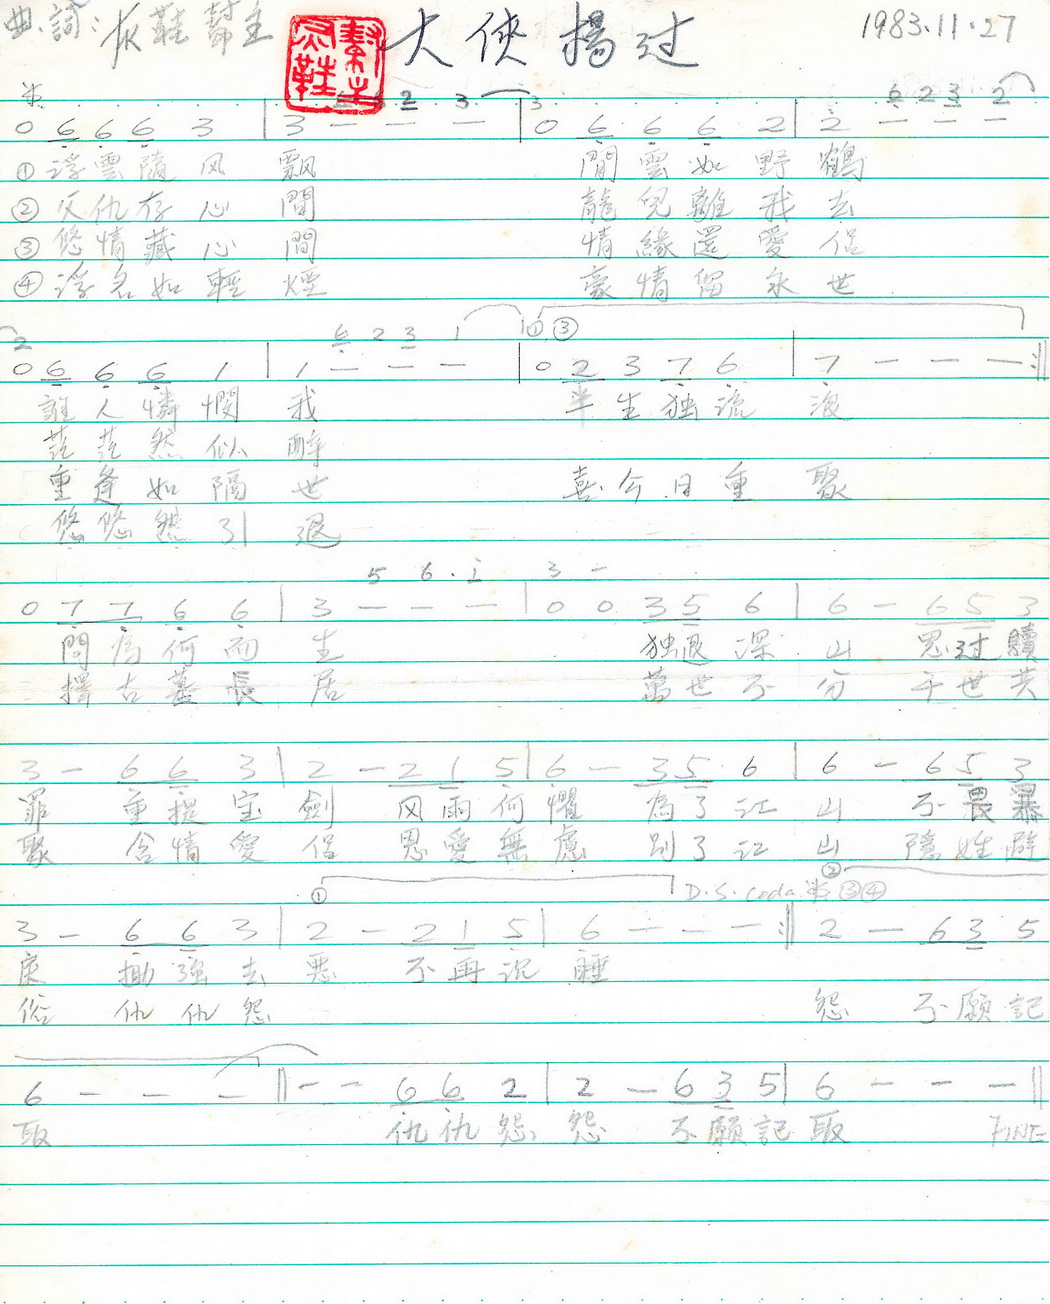 曲.詞:灰鞋幫主 大俠楊过 1983.11.27
2 3 3 6 2 3 2
0 6 6 6 3 | 3 — — — | 0 6 6 6 2 | 2 — — —
①浮雲隨风飄 閒雲如野鶴
②父仇存心間 龍兒離我去
③悠情藏心間 情緣還愛侶
④浮名如輕煙 豪情留永世
2 6 2 3 1 ①,③
0 6 6 6 1 | 1 — — — | 0 2 3 7 6 | 7 — — —
誰人憐憫我 半生独流浪
茫茫然似醉
重逢如隔世 喜今日重聚
悠悠然引退
5 6. i 3 —
0 7 7 6 6 | 3 — — — | 0 0 3 5 6 | 6 — 6 5 3
問為何而生 独退深山 思过贖
擇古墓長居 萬世不分 千世共
3 — 6 6 3 | 2 — 2 1 5 | 6 — 3 5 6 | 6 — 6 5 3
罪 重提宝劍 风雨何懼 為了江山 不畏暴
聚 含情愛侶 恩愛無慮 别了江山 隱姓避
① D.S. coda ③④ ②
3 — 6 6 3 | 2 — 2 1 5 | 6 — — — 2 — 6 3 5
戾 鋤強去惡 不再沉睡
俗 仇仇怨 怨 不願記
6 — — — — — 6 6 2 | 2 — 6 3 5 | 6 — — —
取 仇仇怨 怨 不願記取 FINE